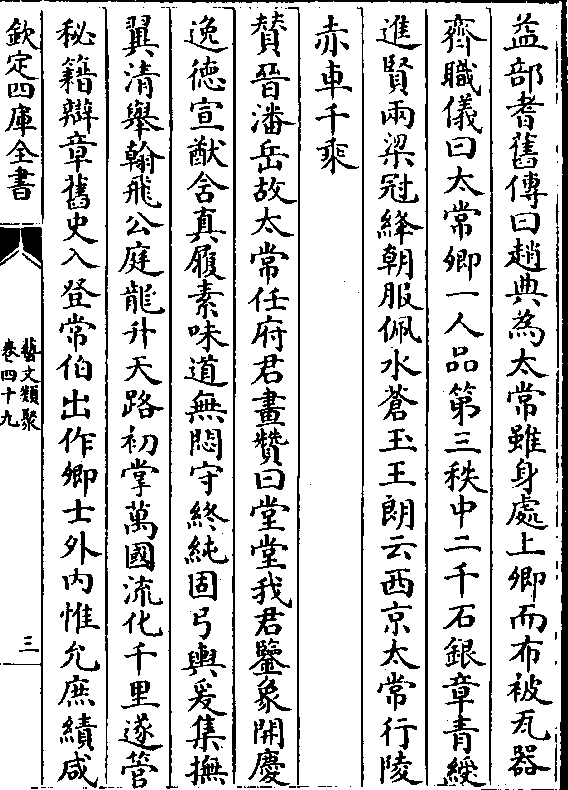 益部耆舊傳曰趙典為太常雖身處上卿而布被瓦器
齊職儀曰太常卿一人品第三秩中二千石銀章青綬
進賢兩梁冠絳朝服佩水蒼玉王朗云西京太常行陵
赤車千乘
賛晉潘岳故太常任府君畫贊曰堂堂我君鑒象開慶
逸德宣猷含真履素味道無悶守終純固弓輿爰集撫
翼清舉翰飛公庭龍升天路初掌萬國流化千里遂管
秘籍辯章舊史入登常伯出作卿士外内惟允庶績咸
欽定四庫全書
藝文類聚
卷四十九
三